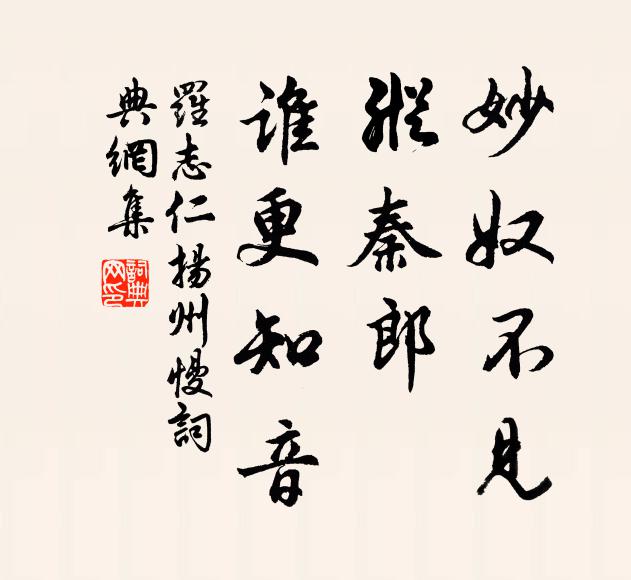 妙奴不見
縱秦郎
誰更知音
羅志仁揚州慢詞
典網集
詞典
网印